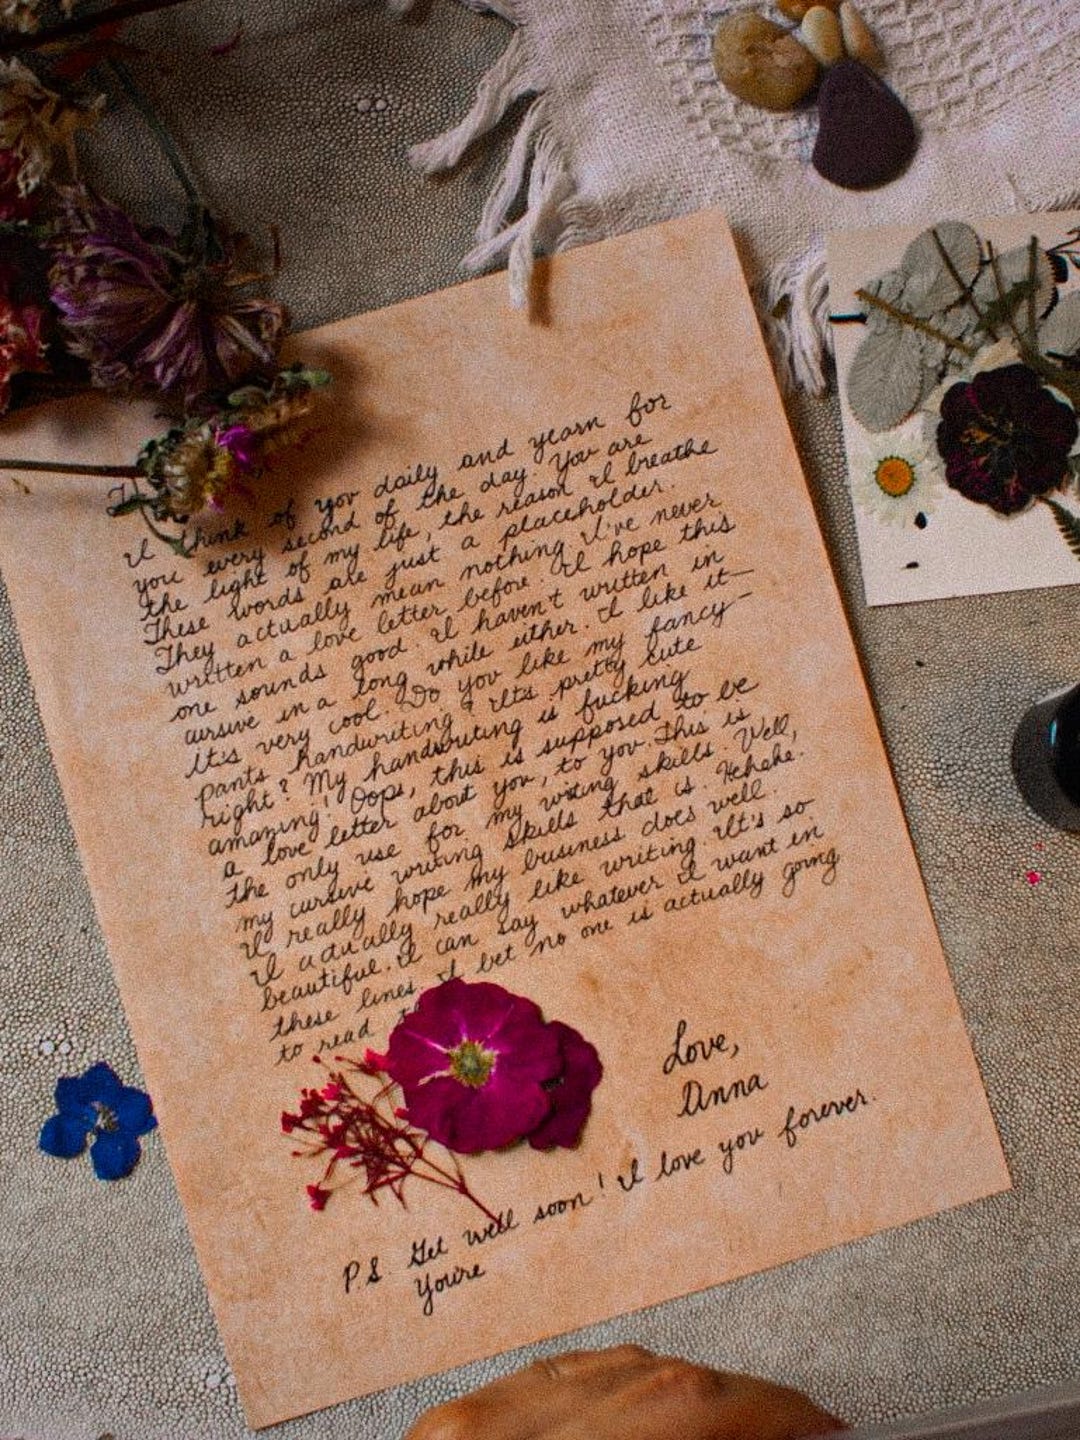 I think of you daily and yearn for
you every second of the day. You are
the light of my life, the reason I breathe
These words are just a placeholder.
They actually mean nothing I've never
written a love letter before. I hope this
one sounds good. I haven't written in
cursive in a long while either. I like it—
it's very cool. Do you like my fancy-
pants handwriting? It's pretty cute
right? My handwriting is fucking
amazing! Oops, this is supposed to be
a love letter about you, to you. This is
the only use for my writing skills. Well,
my cursive writing skills that is. Hehehe.
I really hope my business does well.
I actually really like writing. It's so
beautiful. I can say whatever I want in
these lines. I bet no one is actually going
to read
Love,
Anna
P.S. Get well soon! I love you forever.
You're